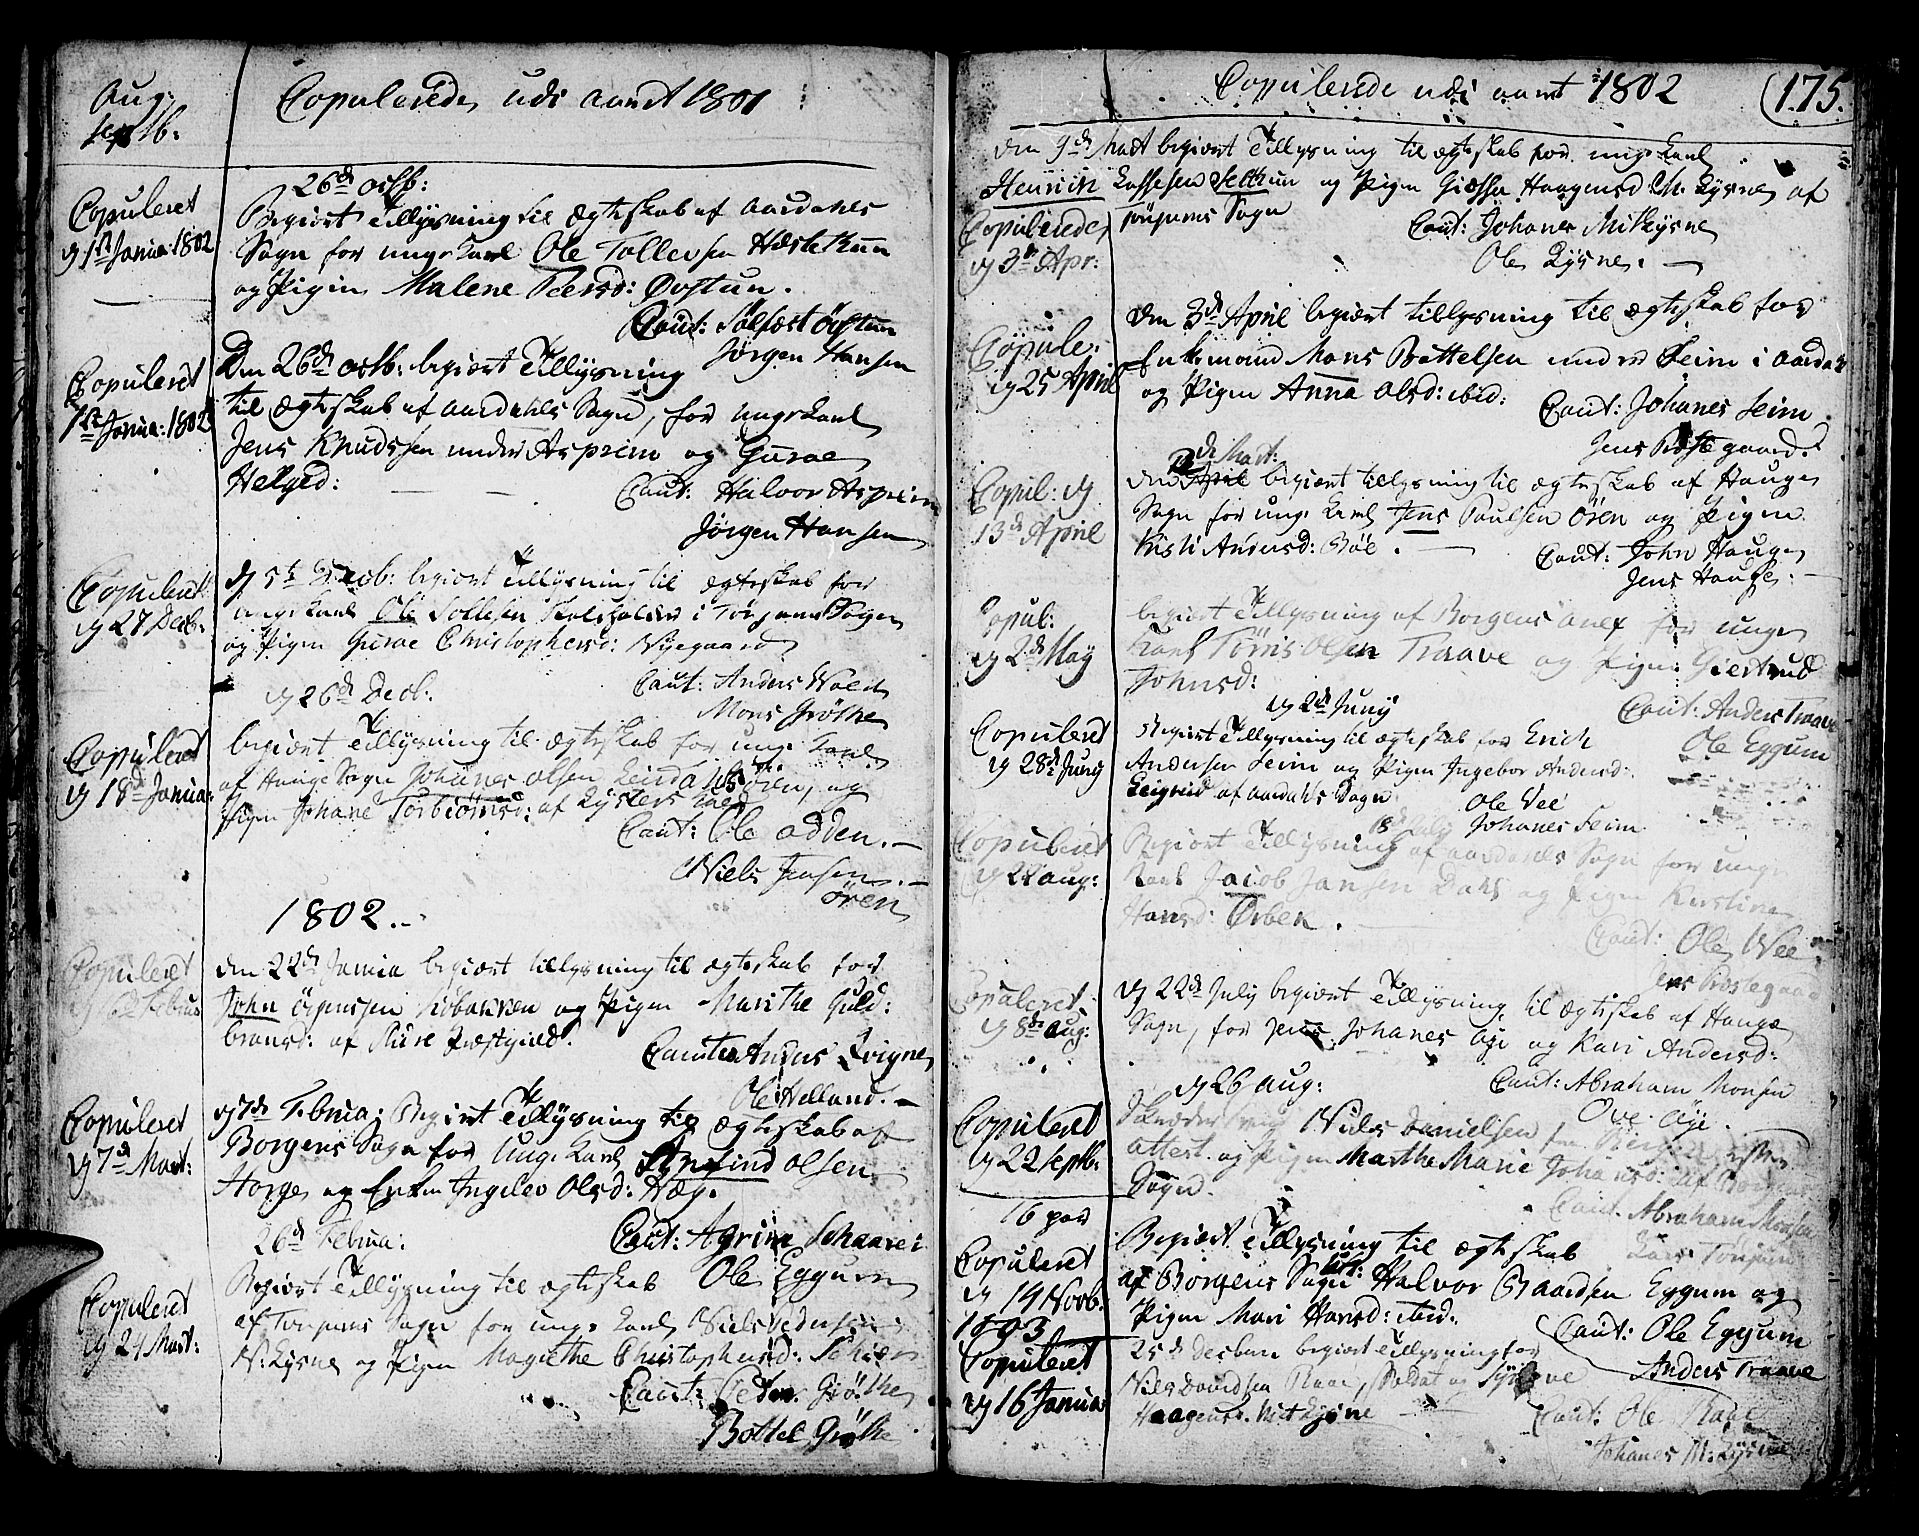 Aug:
septb.
Copulerede udi aaret 1801
Copuleret
d 1ste Janua: 1802
26de octb:
Begiært Tillysning til Ægteskab af Aardahls
Sogn for ungekarl Ole Tollevsen Hæstetuun
og Pigen Malene Peersd: Øvstun.
Caut: Sølfæst Øvstun
Jørgen Hansen
Copuleret
1ste Janua: 1802
Den 26de octb: begiært Tillysning
til Ægteskab af Aardahls Sogn, for ungekarl
Jens Knudssen under Asperim og Guroe
Helged:
Caut: Halvor Asperim
Jørgen Hansen
Copuleret
d 27 Decb.
d 5te Decb: begiært Tillysning til ægteskab for
ungekarl Ole Tollefsen i Tønjums Sogn
og Pigen Guroe Christophersd: Nyegaard
Caut: Anders Wold
Mons Grøthe
Copuleret
d 18de Janua:
d 26de Decb:
begiært Tillysning til Ægteskab for ung: karl
af Hauge Sogn Johanes Olsen ører, og
Pigen Johane Torbiørnsd: af Lysters
Caut: Ole Odden.
Niels Jensen
ören
1802.
Copuleret
d Februa
den 22de Janua begiært tillysning til ægteskab for
John og Pigen Marithe Guld:
bransd: af Præstgield.
Cautn Anders Qvigne
Ole Helland.
Copuleret
d 7de Mart:
d 7de Februa: Begiert Tillysning til ægteskab af
Borgens Sogn for Ung: karl Arnfind Olsen
Horge og Enken Ingelev Olsd: Hæg.
Caut: Agrim Schaarei
Ole Eggum
Copuleret
d 24 Mart:
26de Februa:
Begiært Tillysning til ægteskab
af Tønjums Sogn for unge karl Niels Pedersen
N: Lysne og Pigen Magrethe Christophersd:
Caut: Peder Grøthe
Bottel Grøthe
Copulerede udi aaret 1802
175.
Copulerede
d 3de Apr:
den 9de Mart begiært Tillysning til ægteskab for unge karl
Henrich Lassesen Selthun og Pigen Giøssa Haagensd: M. Lysne af
tønjums Sogn
Caut: Johanes Mitlysne
Ole Lysne.
Copule:
d 25 April
den 3de April begiært tillysning til ægteskab for
Enkemand Mons Bottelsen under Seim i Aardal
og Pigen Anna Olsd: ibid:
Caut: Johanes Seim
Jens Præstegaard.
Copul: d
13de April
2de Mart:
den April begiært tillysning til ægteskab af Hauge
Sogn for ung: karl Jens Paulsen Ören og Pigen
Kristi Andersd: Böe.
Caut: John Hauge
Jens Hauge.
Copul:
d 2de May
begiært Tillysning af Borgens anex for unge
karl Tørris Olsen Traave og Pigen Giertrud
Johnsd:
Caut: Anders Traave
Ole Eggum
Copuleret
d 28de Juny
d 2de Juny
Begiert Tillysning til ægteskab for Erich
Andersen Seim og Pigen Ingebor Andersd:
af aardahls Sogn
Ole Vee
Johanes Seim
Copuleret
d 22 aug:
18de July
Begiært Tillysning af aardahls Sogn for ung
karl Jacob Jansen Dahl og Pigen Kirstine
Hansd: Ørben.
Caut: Ole Wee
Jens Præstegaard
Copuleret
d 8de aug:
d 22de July begiært Tillysning til ægteskab af Hauge
Sogn, for Jens Johanes Øÿe og Kari Andersd:
Caut: Abraham Monsen
Ove Øye.
Copuleret
d 22 septb.
d 26 aug:
Niels Danielsen
attest. og Pigen Marthe Marie Johansd: af
Sogn.
Caut. Abraham Monsen
Tønjum
16 par
Copuleret
d 14 Novb.
Begiert Tillysning til ægteskab
af Borgens Sogn Halvor Baardsen Eggum og
Pigen Mari Hansd: ibid.
Caut: Ole Eggum
Anders Traave
1803
Copuleret
d 16 Janua
25de Decbmr begiert Tillysning for
Niels Davidsen Raae, Soldat og
Haagensd. Mitlysne
Caut: Ole Raae
Johanes M: Lysne